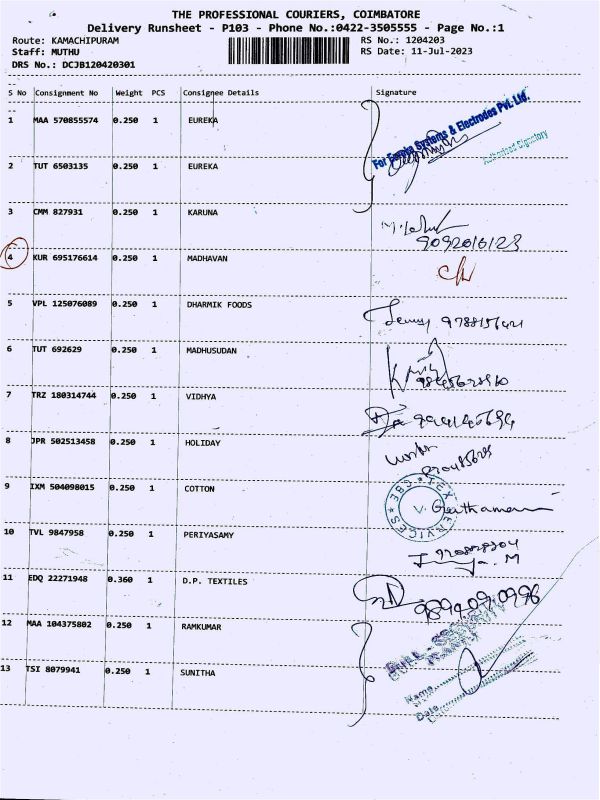 THE PROFESSIONAL COURIERS, COIMBATORE
Delivery Runsheet - P103 - Phone No.:0422-3505555 - Page No.:1
Route: KAMACHIPURAM RS No.: 1204203
Staff: MUTHU RS Date: 11-Jul-2023
DRS No.: DCJB120420301
S No Consignment No Weight PCS Consignee Details Signature
1 MAA 570855574 0.250 1 EUREKA
For Eureka Systems & Electrodes Pvt. Ltd.
Authorised Signatory
2 TUT 6503135 0.250 1 EUREKA
3 CMM 827931 0.250 1 KARUNA
9092016123
4 KUR 695176614 0.250 1 MADHAVAN
5 VPL 125076089 0.250 1 DHARMIK FOODS
6 TUT 692629 0.250 1 MADHUSUDAN
7 TRZ 180314744 0.250 1 VIDHYA
8 JPR 502513458 0.250 1 HOLIDAY
9 IXM 504098015 0.250 1 COTTON
10 TVL 9847958 0.250 1 PERIYASAMY
11 EDQ 22271948 0.360 1 D.P. TEXTILES
9894090996
12 MAA 104375802 0.250 1 RAMKUMAR
13 TSI 8079941 0.250 1 SUNITHA
Name
Date